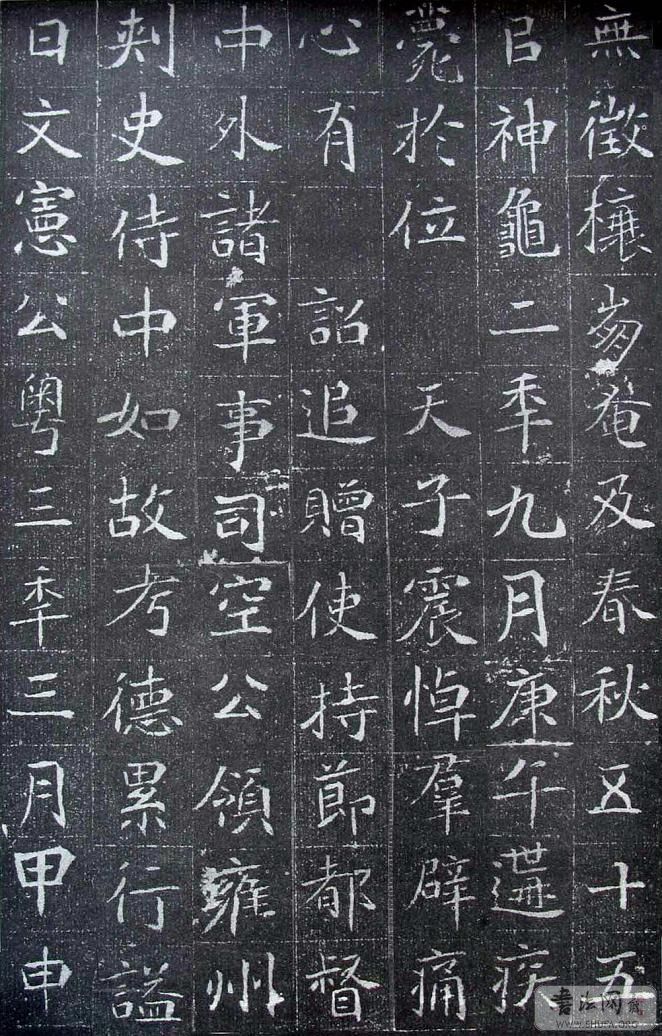 無徵欀崩奄及春秋五十五
㠯神龜二秊九月庚午遘疾
薨於位 天子震悼羣辟痛
心有 詔追贈使持節都督
中外諸軍事司空公領雍州
刺史侍中如故考德累行謚
曰文憲公粵三秊三月甲申
书法网藏
WWW.SHUFA.ORG